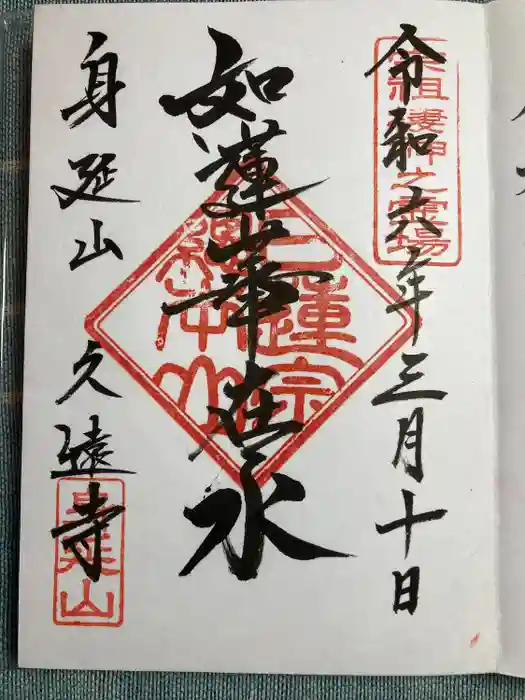 令和六年三月十日
宗祖棲神之霊場
如蓮華在水
日蓮宗
総本山
身延山 久遠寺
身延山